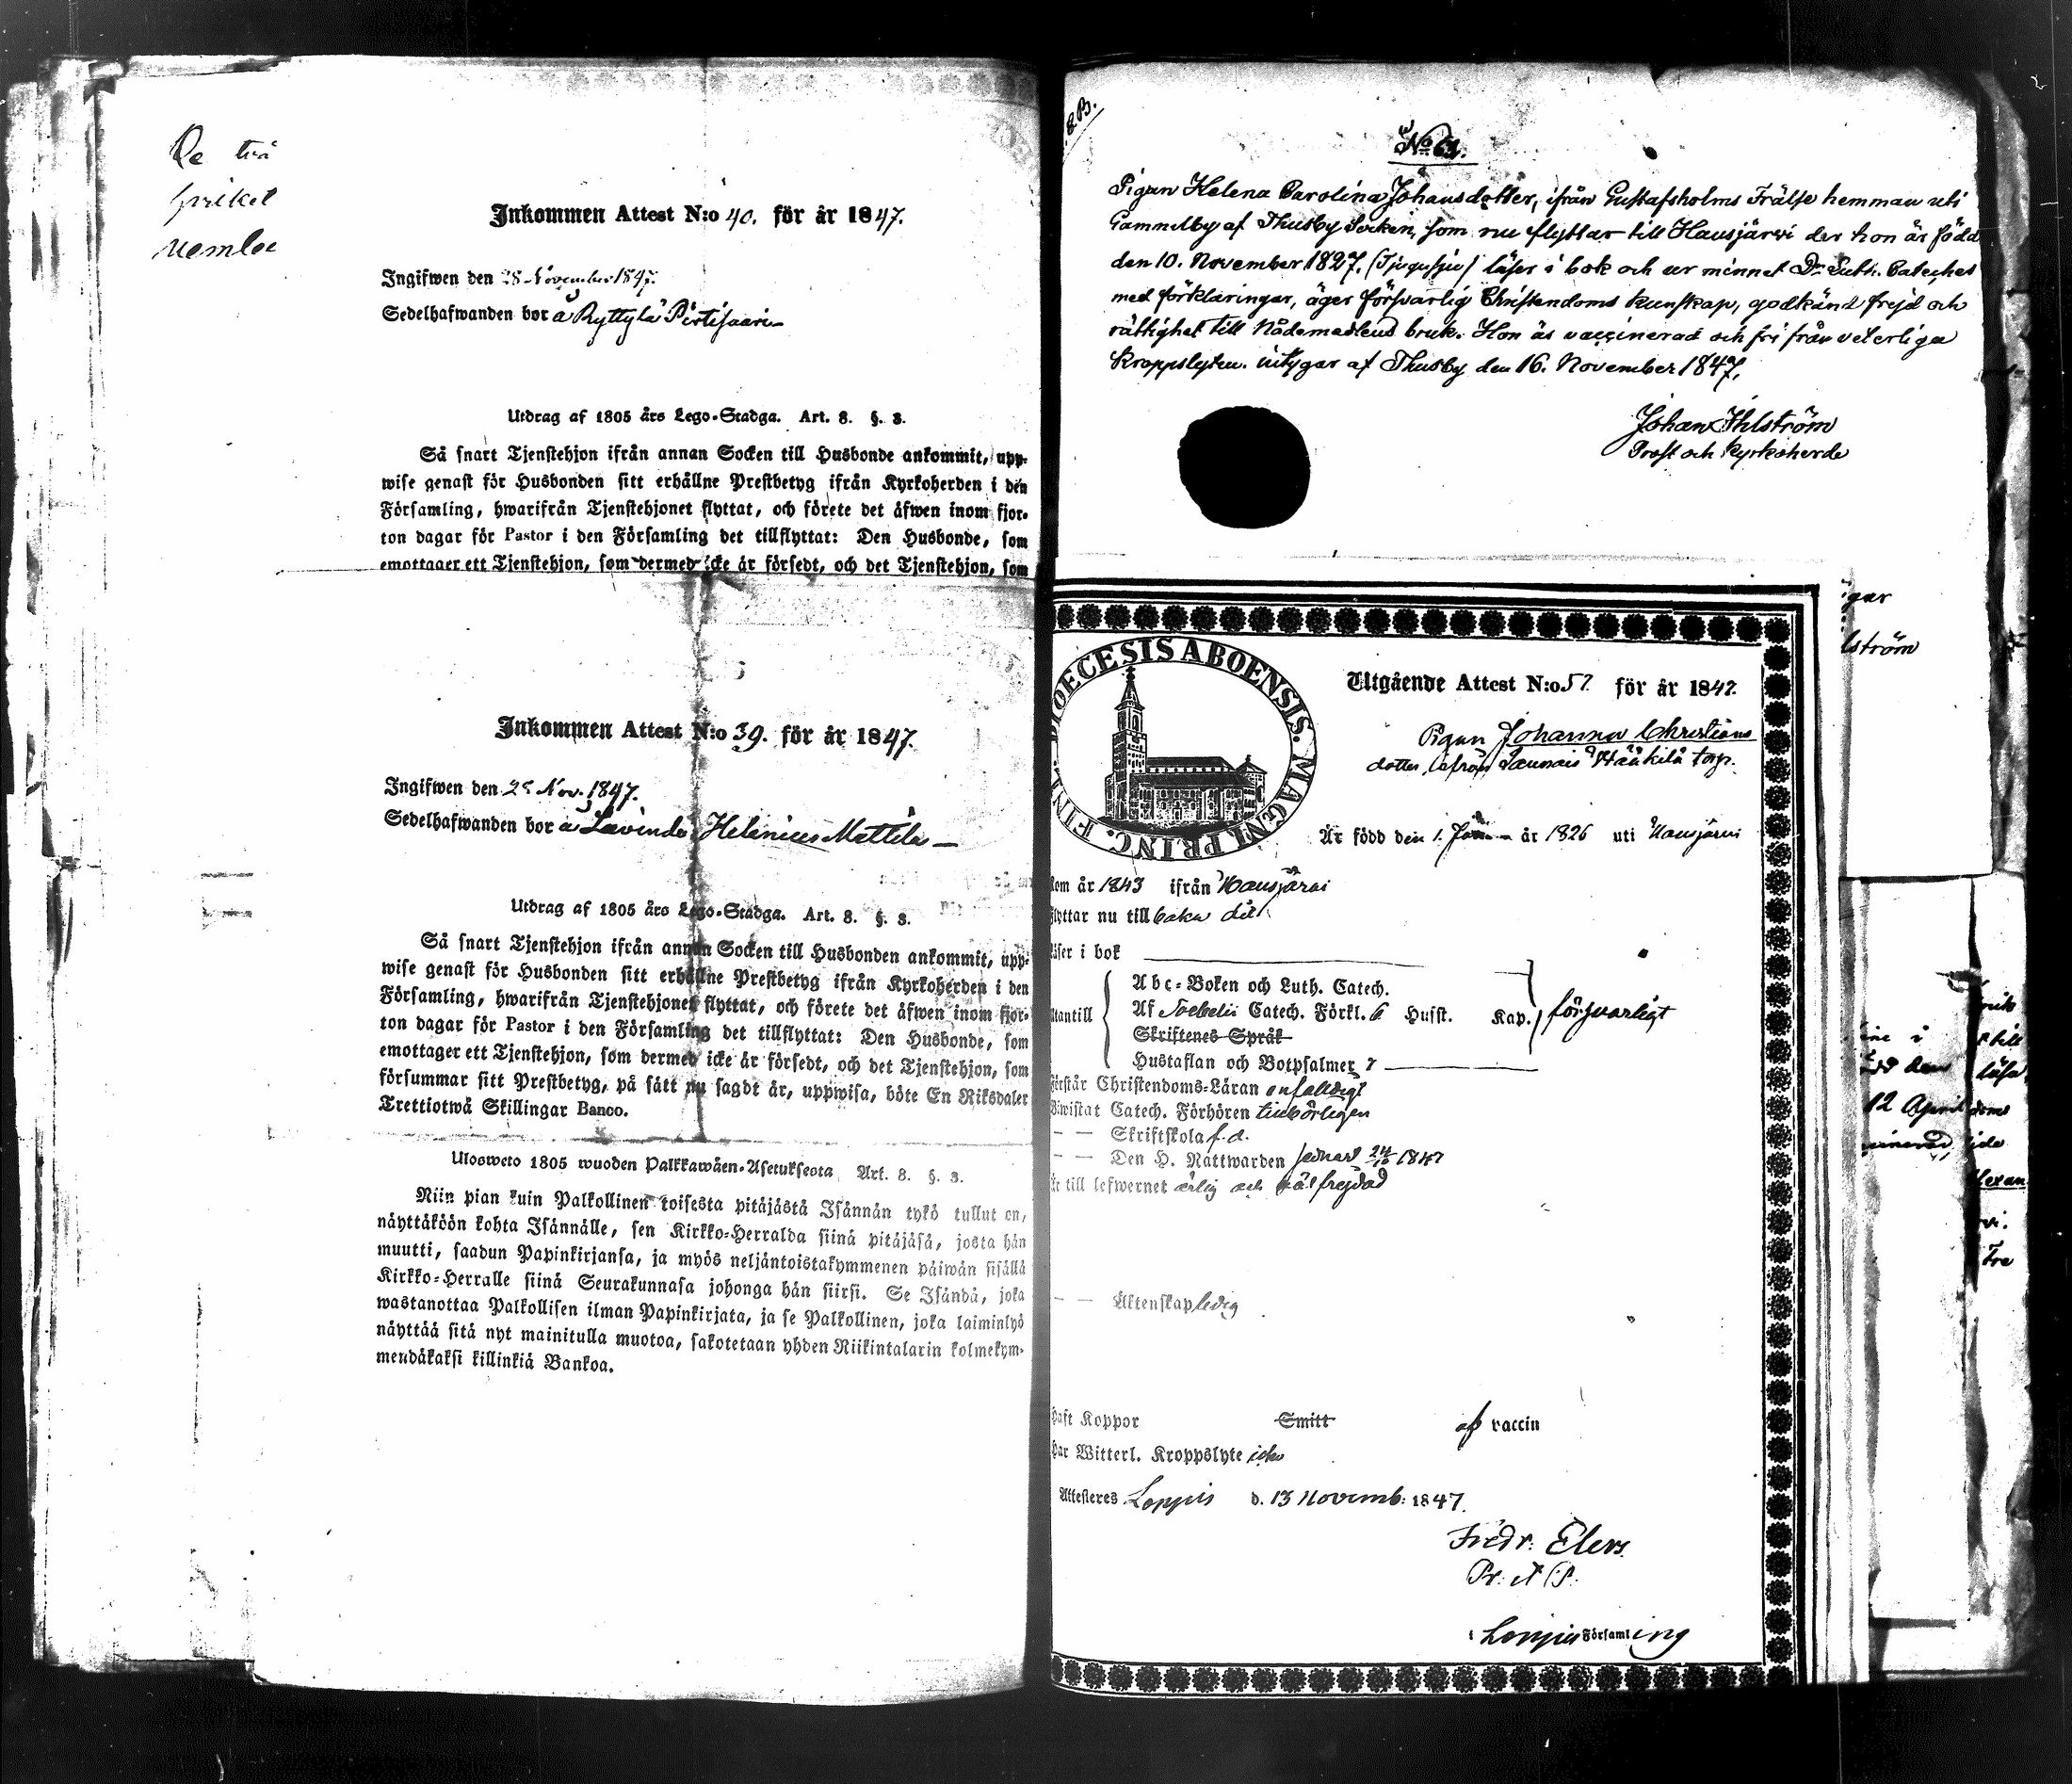 De två
Inkommen Attest N:o 40. för år 1847.
Ingifwen den 28 November 1847.
Sedelhafwanden bor å Ryttylä Pirtisaari
Utdrag af 1805 års Lego-Stadga. Art. 8. §. 3.
Så snart Tjenstehjon ifrån annan Socken till Husbonde ankommit, upp-
wise genast för Husbonden sitt erhållne Prestbetyg ifrån Kyrkoherden i den
Församling, hwarifrån Tjenstehjonet flyttat, och förete det äfwen inom fjor-
ton dagar för Pastor i den Församling det tillflyttat: Den Husbonde, som
emottager ett Tjenstehjon, som dermed icke är försedt, och det Tjenstehjon, som
Inkommen Attest N:o 39. för år 1847.
Ingifwen den 28 Nov. 1847.
Sedelhafwanden bor å Mattila
Utdrag af 1805 års Lego-Stadga. Art. 8. §. 3.
Så snart Tjenstehjon ifrån annan Socken till Husbonden ankommit, upp-
wise genast för Husbonden sitt erhållne Prestbetyg ifrån Kyrkoherden i den
Församling, hwarifrån Tjenstehjonet flyttat, och förete det äfwen inom fjor-
ton dagar för Pastor i den Församling det tillflyttat: Den Husbonde, som
emottager ett Tjenstehjon, som dermed icke är försedt, och det Tjenstehjon, som
försummar sitt Prestbetyg, på sätt nu sagdt är, uppwisa, böte En Riksdaler
Trettiotwå Skillingar Banco.
Ulosweto 1805 wuoden Palkkawäen-Asetuksesta Art. 8. §. 3.
Niin pian kuin Palkollinen toisesta pitäjästä Isännän tykö tullut on,
näyttäköön kohta Isännälle, sen Kirkko-Herralda siinä pitäjäsä, josta hän
muutti, saadun Papinkirjansa, ja myös neljäntoistakymmenen päiwän sisällä
Kirkko-Herralle siinä Seurakunnasa johonga hän siirsi. Se Isändä, joka
wastanottaa Palkollisen ilman Papinkirjata, ja se Palkollinen, joka laiminlyö
näyttää sitä nyt mainitulla muotoa, sakotetaan yhden Riikintalarin kolmekym-
mendäkaksi killinkiä Bankoa.
No 61.
Pigan Helena Carolina Johansdotter, ifrån Gustafsholms Frälse hemman uti
Gammelby af Thusby Socken, som nu flyttar till Hausjärvi der hon är född
den 10. November 1827. (Tjugusju) läser i bok och ur minnet Dr Luth. Cateches
med förklaringar, äger försvarlig Christendoms kunskap, godkänd frejd och
rättighet till Nådemedlens bruk. Hon är vaccinerad och fri från veterliga
kroppslyten. intygar af Thusby den 16. November 1847.
Johan Ihlström
Prost och Kyrkoherde
lström
DIOECESIS ABOENSIS. MAGNI PRINC. FINL.
Utgående Attest N:o 57. för år 1847.
Pigan Johanna Christians
dotter, ifrån torp.
Är född den 1. år 1826 uti Hausjärvi
Kom år 1843 ifrån Hausjärvi
Flyttar nu tillbaka dit
Läser i bok
Utantill
Abc-Boken och Luth. Catech.
Af Catech. Förkl. 6 Husst. Kap. försvarligt
Skriftenes Språk
Hustaflan och Botpsalmer 7
Förstår Christendoms-Läran enfaldigt
Biwistat Catech. Förhören
— — Skriftskola f. d.
— — Den H. Nattwarden senast 1847
Är till lefwernet ärlig och wälfrejdad
— — Äktenskap ledig
Haft Koppor Smitt af vaccin
Har Witterl. Kroppslyte icke
Attesteres Loppis d. 13 Novemb: 1847.
Fredr. Elers
i Loppis Församling
12 April